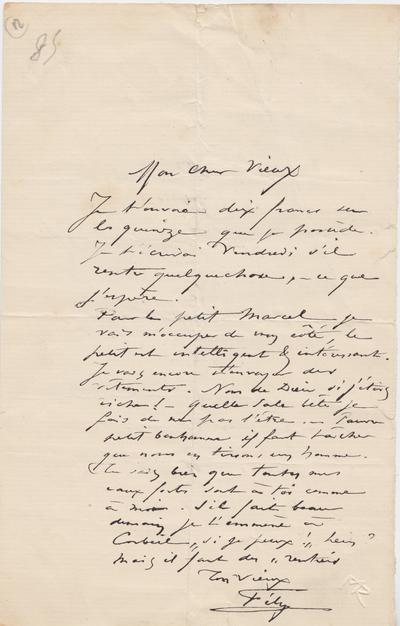 12
85
Mon cher Vieux
Je t'envoie dix francs sur
les quinze que je possède.
Je t'écrirai Vendredi s'il
rentre quelquechose, – ce que
j'espère.
Pour le petit Marcel je
vais m'occuper de mon côté, le
petit est intelligent & intéressant.
Je vais encore t'envoyer des
vêtements. Nom de Dieu si j'étais
riche! – Quelle sale bête je
fais de ne pas l'être. – Pauvre
petit bonhomme il faut tâcher
que nous en tirions un homme.
Tu sais bien que toutes mes
eaux fortes sont à toi comme
à moi. S'il fait beau
demain je t'emmène à
Corbeil, „ si je peux! „ hein?
Mais il faut des „ rentrées
Ton Vieux
Fély